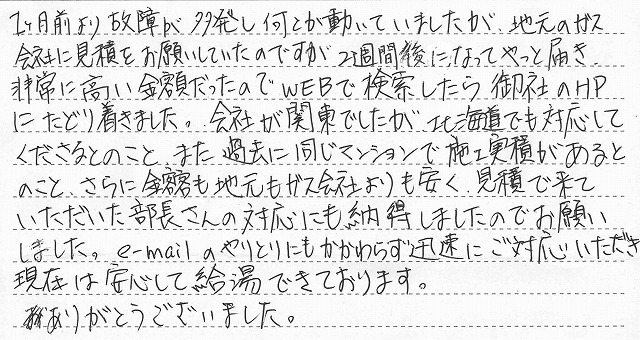 1ヶ月前より故障が多発し何とか動いていましたが、地元のガス
会社に見積をお願いしていたのですが2週間後になってやっと届き、
非常に高い金額だったのでWEBで検索したら御社のHP
にたどり着きました。会社が関東でしたが北海道でも対応して
くださるとのこと、また過去に同じマンションで施工実積があると
のこと、さらに金額も地元もガス会社よりも安く、見積で来て
いただいた部長さんの対応にも納得しましたのでお願い
しました。e-mailのやりとりにもかかわらず迅速にご対応いただき
現在は安心して給湯できております。
ありがとうございました。